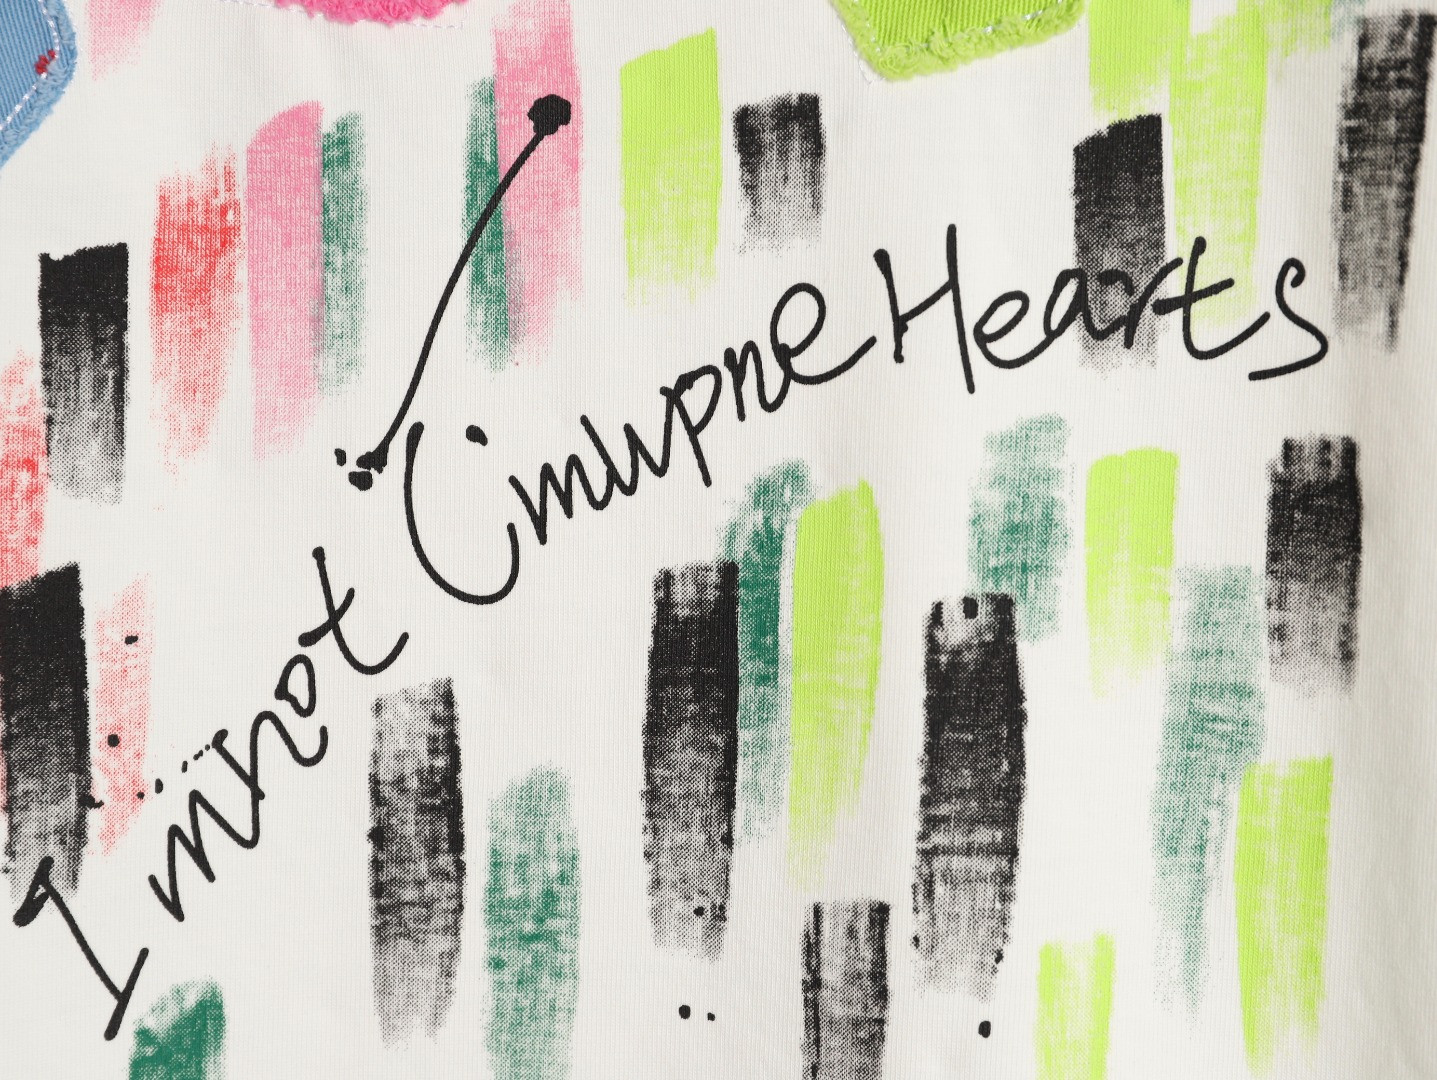 I m not Cimlvpne Hearts